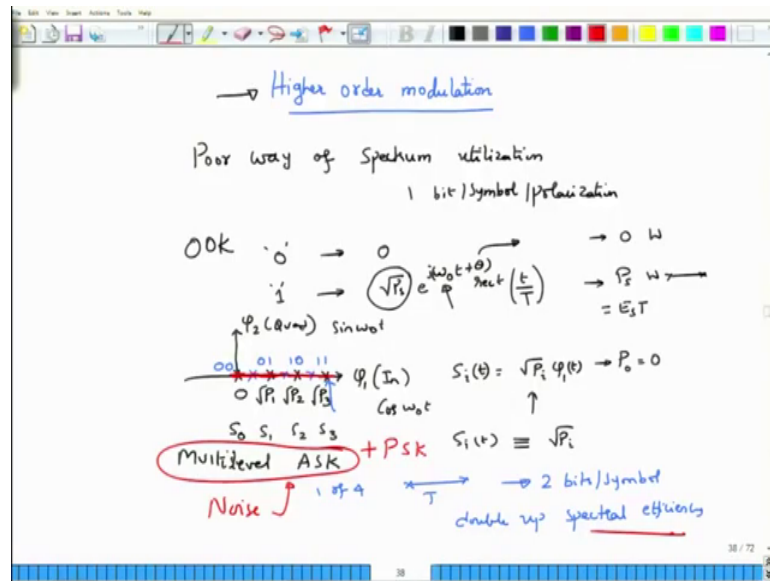 File Edit View Insert Actions Tools Help
→ Higher order modulation
Poor way of Spectrum utilization
1 bit/Symbol/polarization
OOK '0' → 0 → 0 W
'1' → √Ps e^j(ω₀t+θ) rect(t/T) → Ps W
= EsT
φ₂(Quad) sinω₀t
00 01 10 11
φ₁(In) Si(t) = √Pi φ₁(t) → P₀ = 0
0 √P₁ √P₂ √P₃ Cos ω₀t
S₀ S₁ S₂ S₃ Si(t) ≡ √Pi
Multilevel ASK + PSK
Noise 1 of 4 T → 2 bits/Symbol
double up spectral efficiency
38 / 72
38